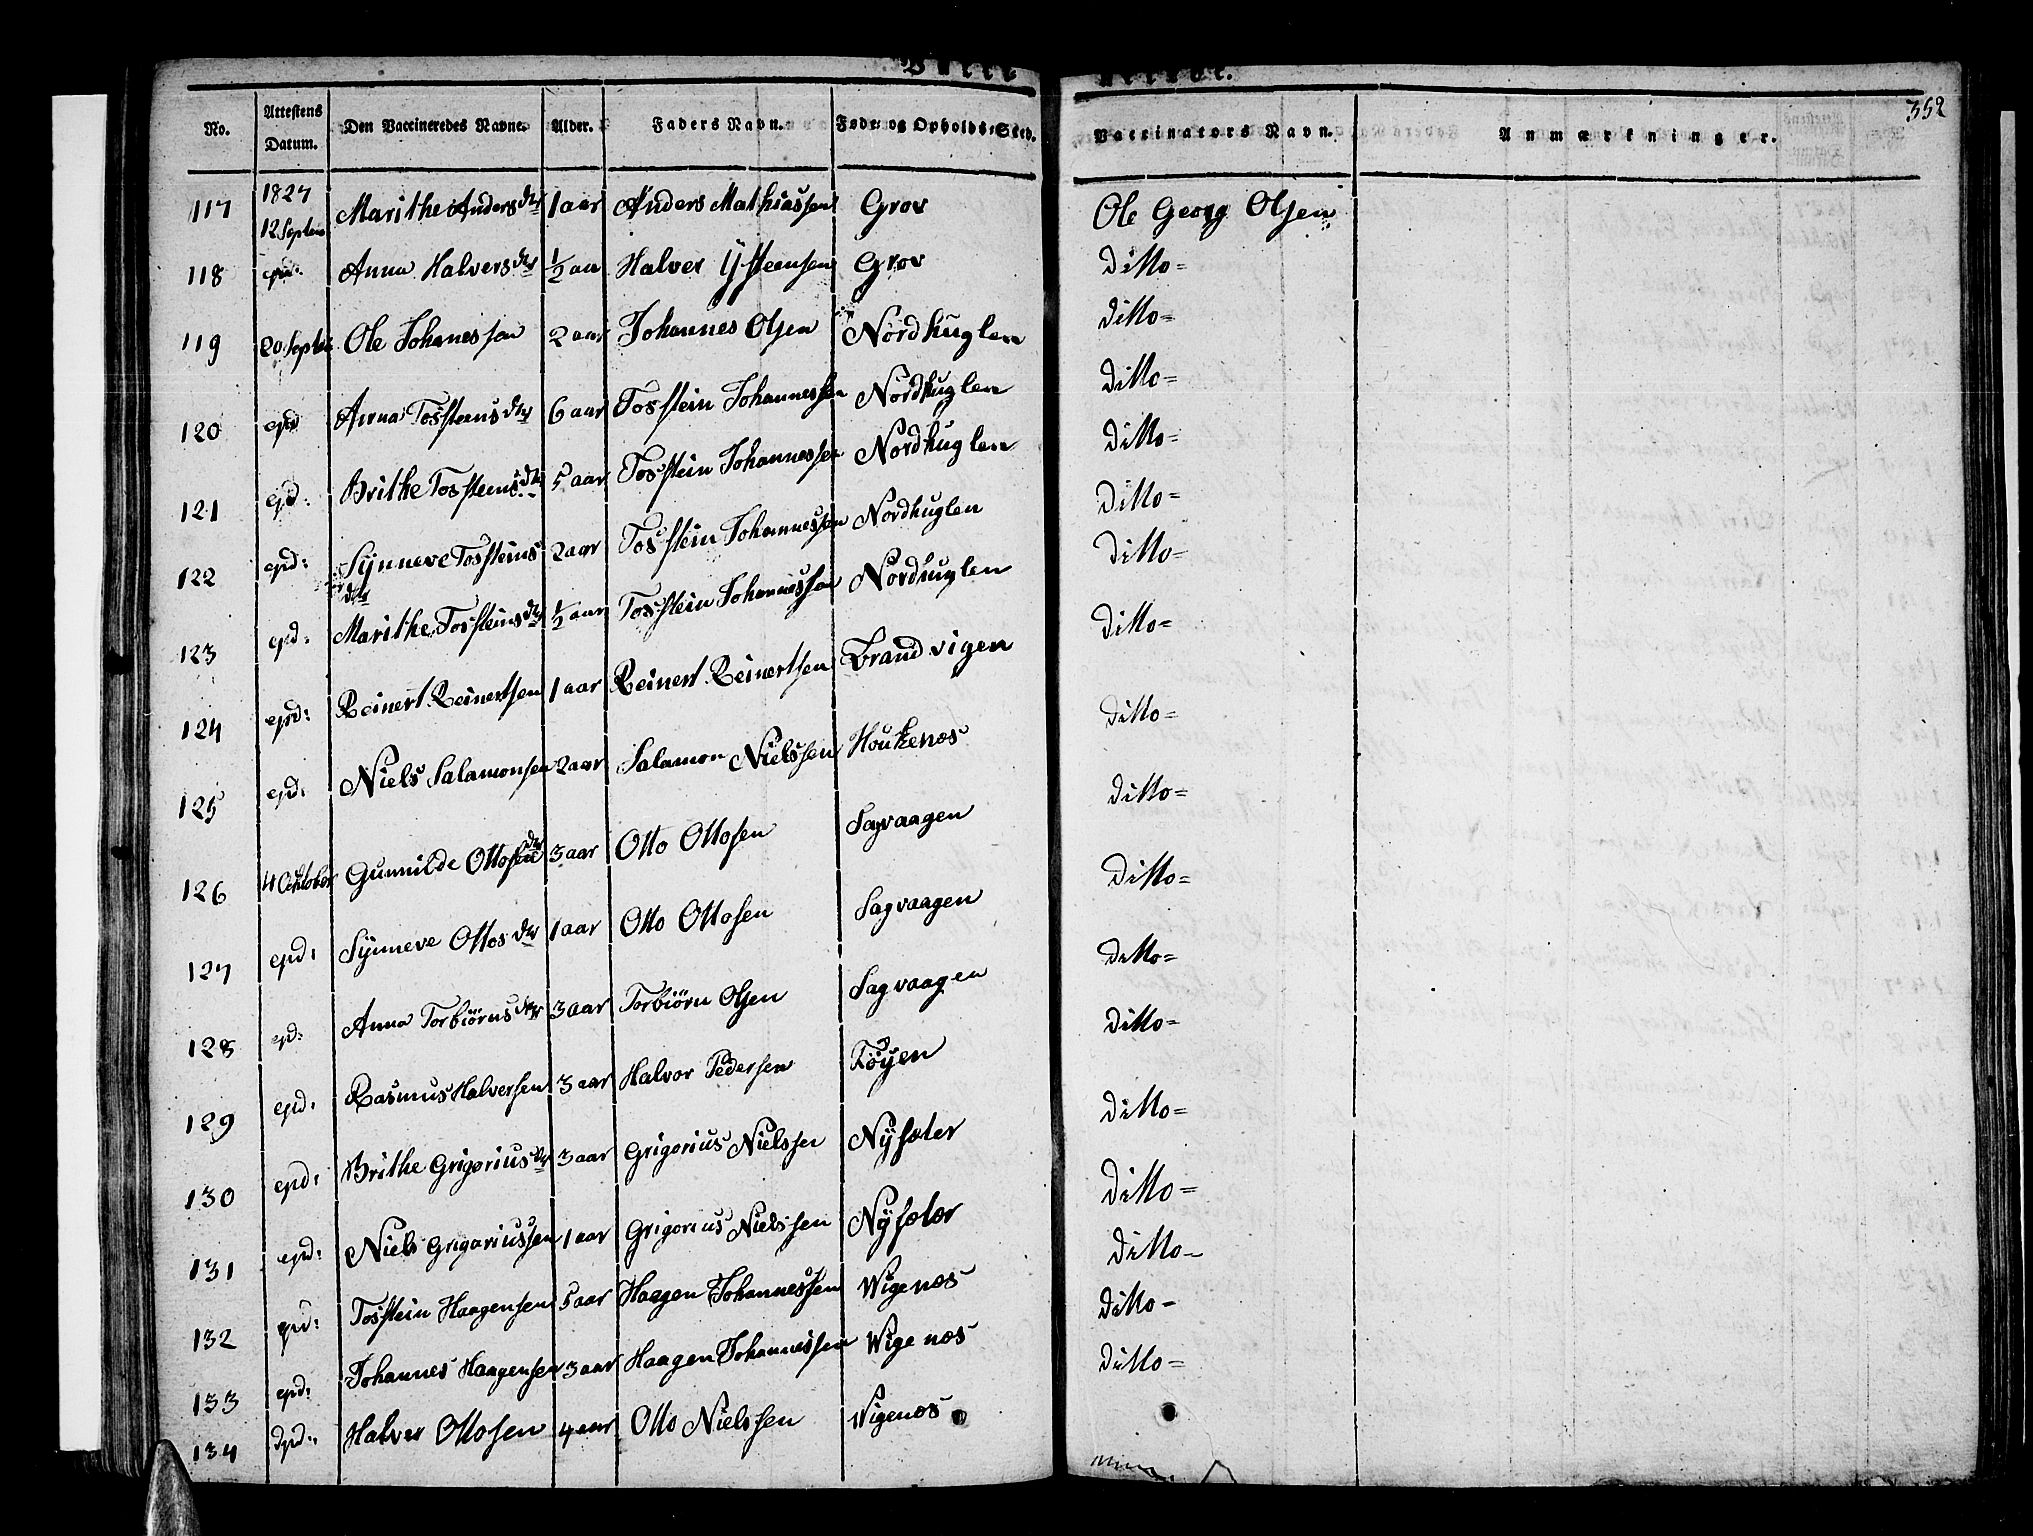 352
No. Attestens Datum. Den Vaccineredes Navne. Alder. Faders Navn. Føde- og Opholds-Sted. Vaccinators Navn. Anmærkninger.
1827
117 12 Septem Marithe Andersdtr 1 aar Anders Mathiassen Grov Ole Georg Olsen
118 epd: Anna Halversdtr 1/2 aar Halver Ÿsteensen Grov Ditto=
119 20 Septbr Ole Johanessøn 2 aar Johannes Olsen Nordhuglen Ditto=
120 epd Anna Tossteensdtr 6 aar Tosstein Johannessen Nordhuglen Ditto=
121 epd. Brithe Tossteensdtr 5 aar Tosstein Johannessen Nordhuglen Ditto=
122 epd: Sÿnneve Tossteins dtr 2 aar Tosstein Johannessen Nordhuglen Ditto=
123 epd: Marithe Tossteinsdtr 1/2 aar Tosstein Johannessøn Nordhuglen Ditto=
124 epd: Reinert Reinertsen 1 aar Reinert Reinertsen Brandvigen Ditto=
125 epd: Niels Salamonsen 2 aar Salamon Nielssen Houkenæs Ditto=
126 4 October Gunnilde Ottosen dtr 3 aar Otto Ottosen Sagvaagen Ditto=
127 epd: Sÿnneve Ottosdtr 1 aar Otto Ottosen Sagvaagen Ditto=
128 epd: Anna Torbiørnsdtr 3 aar Torbiørn Olsen Sagvaagen Ditto=
129 epd: Rasmus Halversen 3 aar Halvor Pedersen Føÿen Ditto=
130 epd: Brithe Grigoriusdtr 3 aar Grigorius Nielssen Nÿsæter Ditto=
131 epd: Niels Grigoriussen 1 aar Grigorius Nielssen Nÿsæter Ditto=
132 epd: Tosstein Haagensen 5 aar Haagen Johannessen Wigenæs Ditto=
133 epd: Johannes Haagensen 3 aar Haagen Johannessen Wigenæs Ditto=
134 dpd: Halver Ottosen 4 aar Otto Nielssen Wigenæs Ditto=